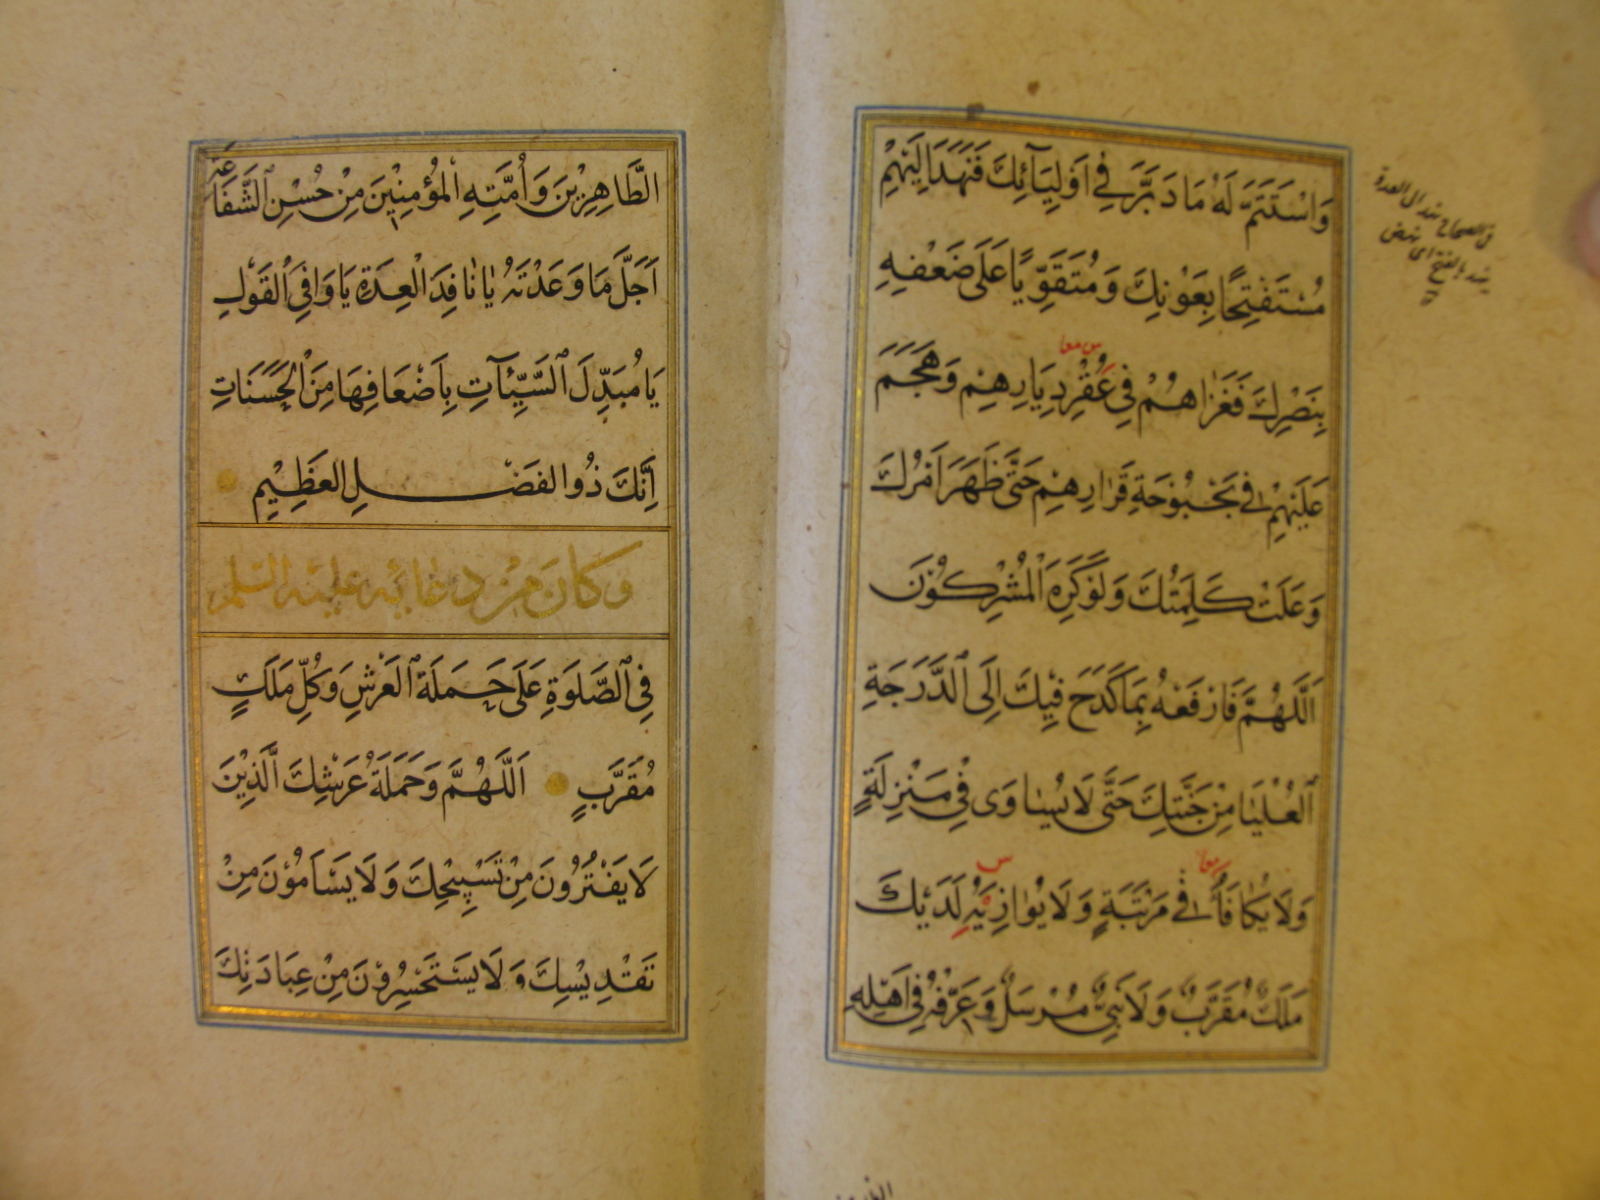 وَاسْتَتَمَّ لَهُ مَا دَبَّرَ فِي أَوْلِيَآئِكَ فَنَهَدَ إِلَيْهِمْ
مُسْتَفْتِحًا بِعَوْنِكَ وَمُتَقَوِّيًا عَلَى ضَعْفِهِ
بِنَصْرِكَ فَغَزَاهُمْ فِي عُقْرِ دِيَارِهِمْ وَهَجَمَ
عَلَيْهِمْ فِي بُحْبُوحَةِ قَرَارِهِمْ حَتَّى ظَهَرَ أَمْرُكَ
وَعَلَتْ كَلِمَتُكَ وَلَوْ كَرِهَ الْمُشْرِكُونَ
اَللَّهُمَّ فَارْفَعْهُ بِمَا كَدَحَ فِيكَ إِلَى الدَّرَجَةِ
الْعُلْيَا مِنْ جَنَّتِكَ حَتَّى لَا يُسَاوَى فِي مَنْزِلَةٍ
وَلَا يُكَافَأَ فِي مَرْتَبَةٍ وَلَا يُوَازِيَهُ لَدَيْكَ
مَلَكٌ مُقَرَّبٌ وَلَا نَبِيٌّ مُرْسَلٌ وَعَرِّفْهُ فِي أَهْلِهِ
الطَّاهِرِينَ وَأُمَّتِهِ الْمُؤْمِنِينَ مِنْ حُسْنِ الشَّفَاعَةِ
أَجَلَّ مَا وَعَدْتَهُ يَا نَافِدَ الْعِدَةِ يَا وَافِيَ الْقَوْلِ
يَا مُبَدِّلَ السَّيِّئَآتِ بِأَضْعَافِهَا مِنَ الْحَسَنَاتِ
إِنَّكَ ذُو الْفَضْلِ الْعَظِيمِ
وَكَانَ مِنْ دُعَائِهِ عَلَيْهِ السَّلَم
فِي الصَّلَوةِ عَلَى حَمَلَةِ الْعَرْشِ وَكُلِّ مَلَكٍ
مُقَرَّبٍ اَللَّهُمَّ وَحَمَلَةُ عَرْشِكَ الَّذِينَ
لَا يَفْتُرُونَ مِنْ تَسْبِيحِكَ وَلَا يَسْأَمُونَ مِنْ
تَقْدِيسِكَ وَلَا يَسْتَحْسِرُونَ مِنْ عِبَادَتِكَ